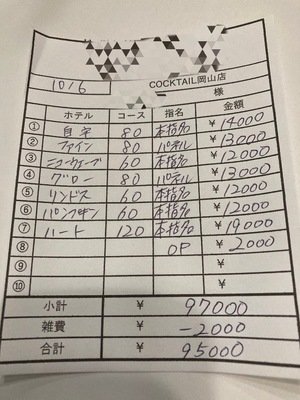 COCKTAIL岡山店
10/6 様
ホテル コース 指名 金額
① 自宅 80 本指名 ¥14000
② ファイン 80 パネル ¥13000
③ ニューウェーブ 60 本指名 ¥12000
④ グロー 80 パネル ¥13000
⑤ リンドス 60 本指名 ¥12000
⑥ パンプキン 60 本指名 ¥12000
⑦ ハート 120 本指名 ¥19000
⑧ OP ¥2000
⑨ ¥
⑩ ¥
小計 ¥ 97000
雑費 ¥ -2000
合計 ¥ 95000